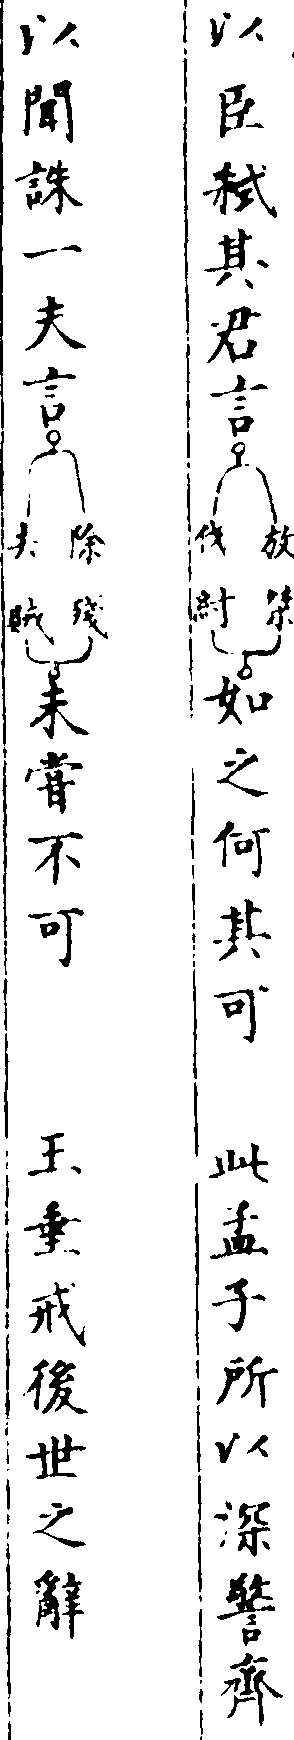 以臣弑其君言放桀伐紂如之何其可　此孟子所以深警齊
以聞誅一夫言除殘去賊未嘗不可　王垂戒後世之辭